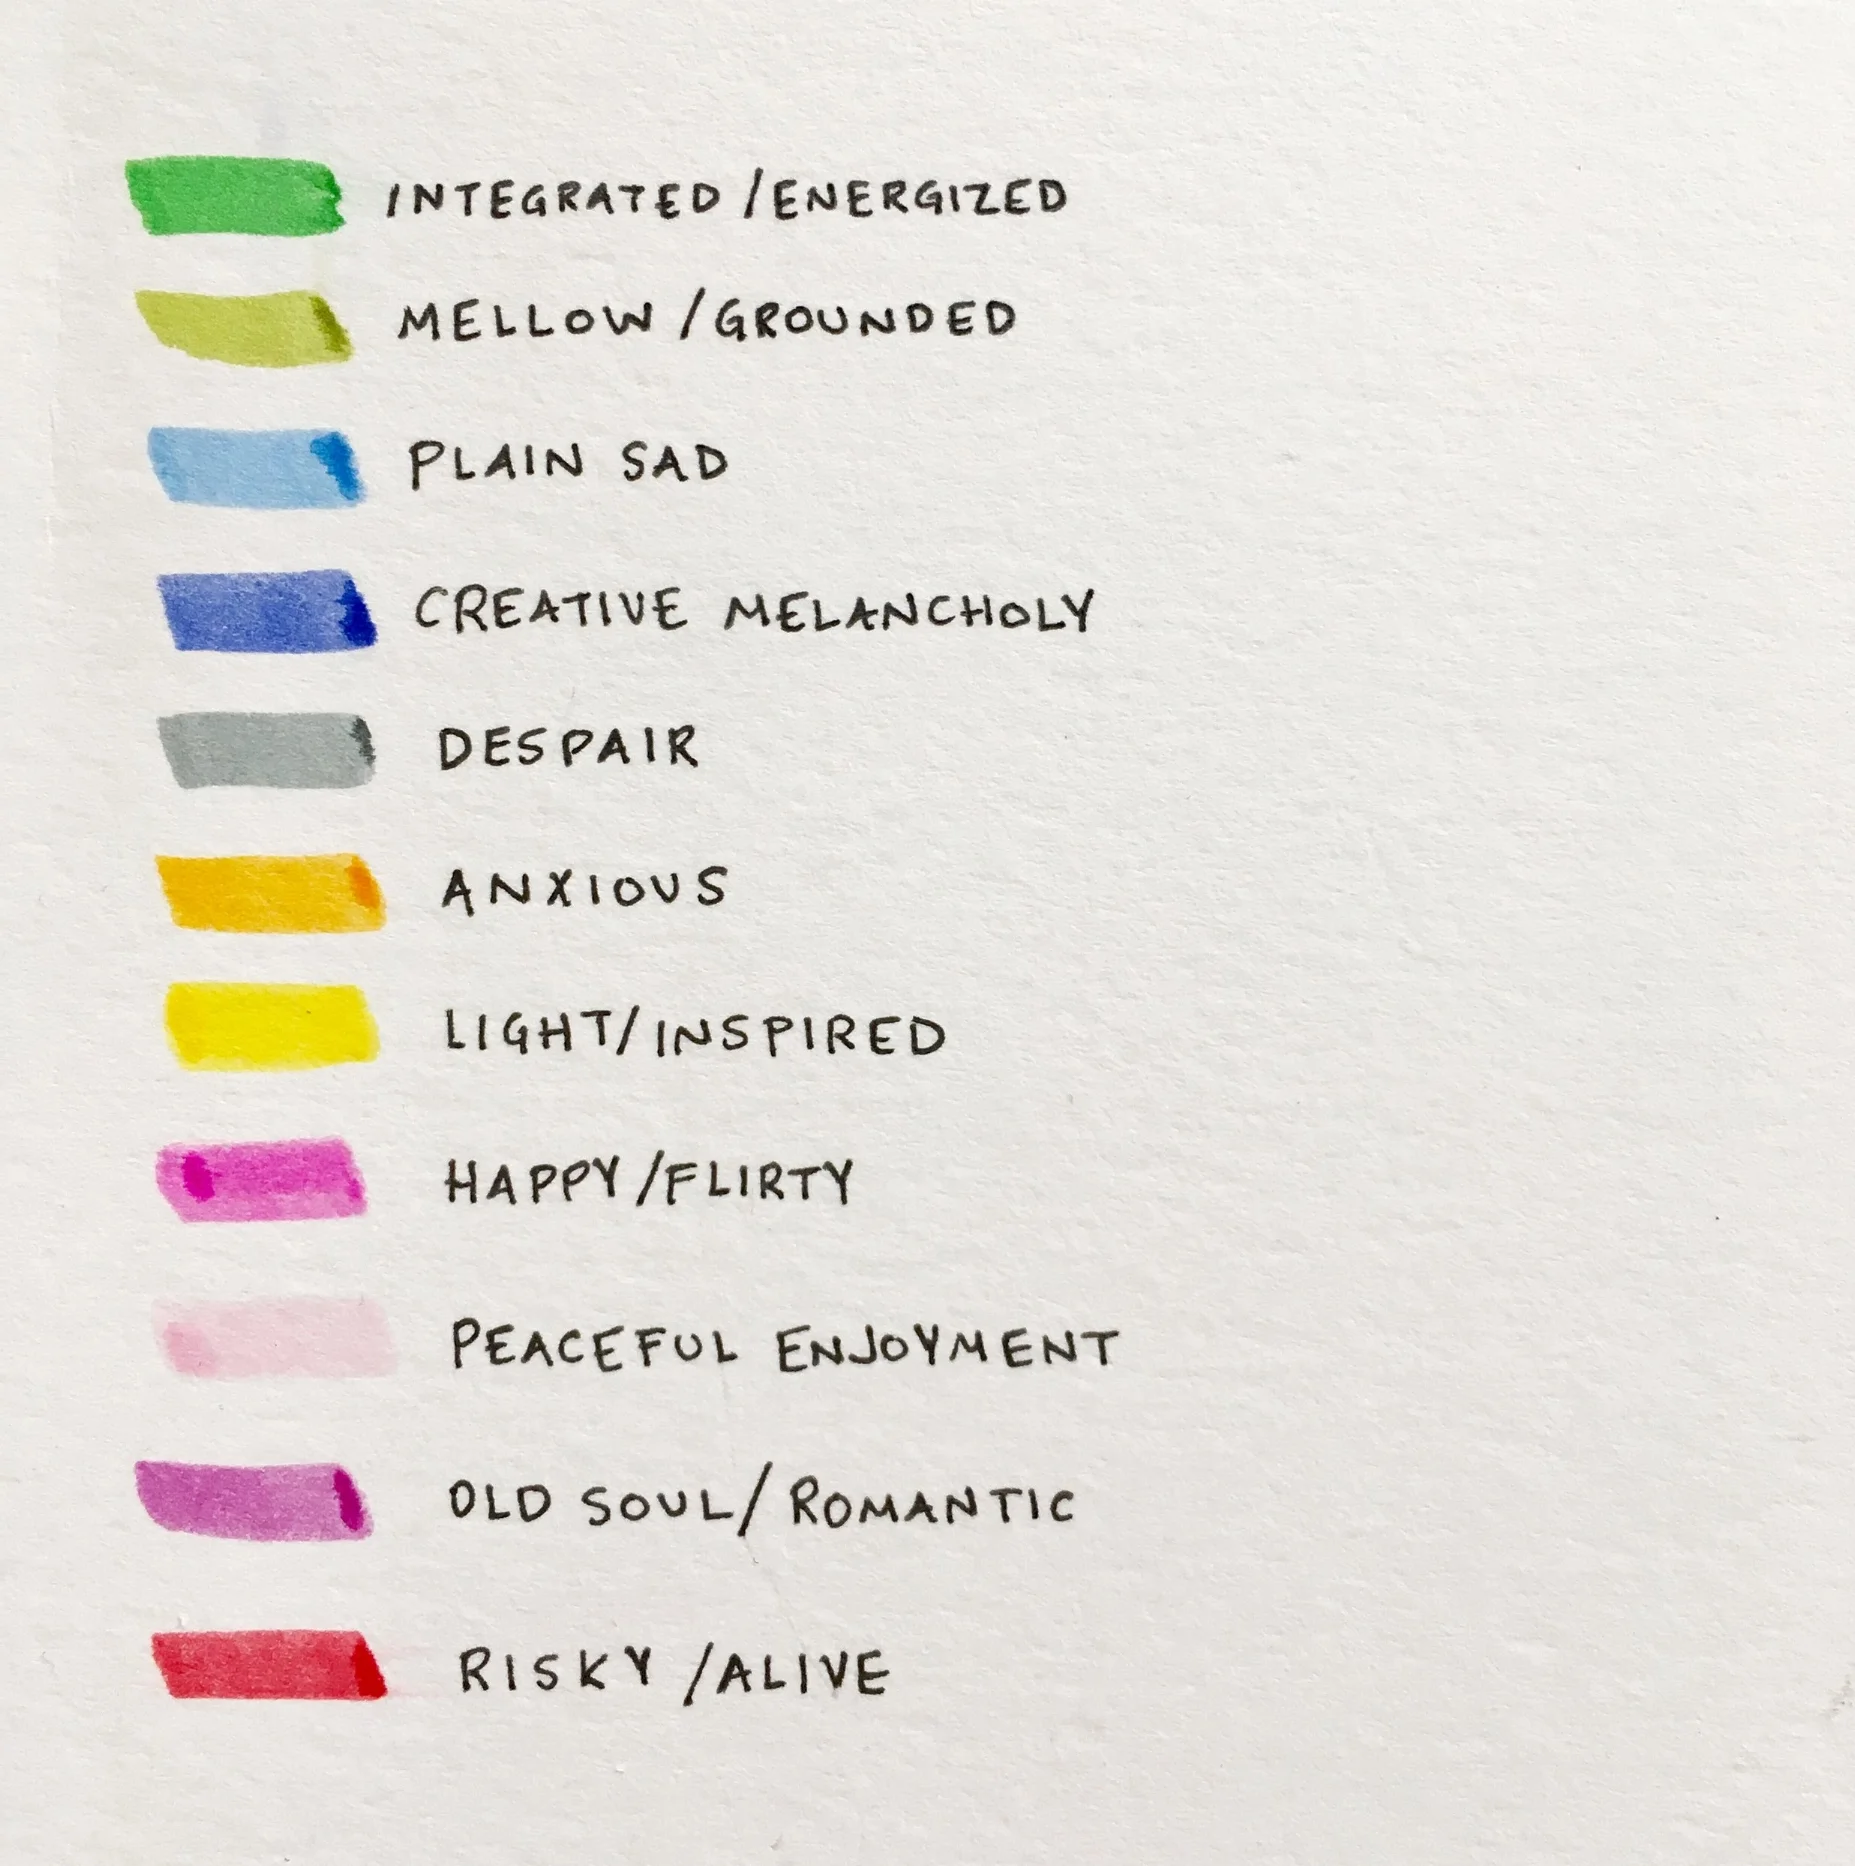 INTEGRATED /ENERGIZED
MELLOW /GROUNDED
PLAIN SAD
CREATIVE MELANCHOLY
DESPAIR
ANXIOUS
LIGHT/INSPIRED
HAPPY/FLIRTY
PEACEFUL ENJOYMENT
OLD SOUL/ROMANTIC
RISKY /ALIVE